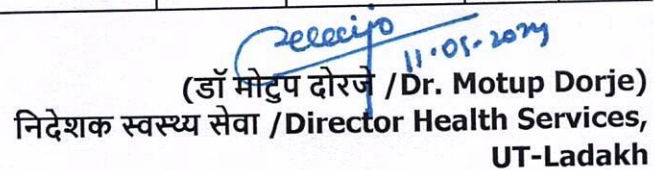 11.05.2024
(डॉ मोटुप दोरजे /Dr. Motup Dorje)
निदेशक स्वस्थ्य सेवा /Director Health Services,
UT-Ladakh